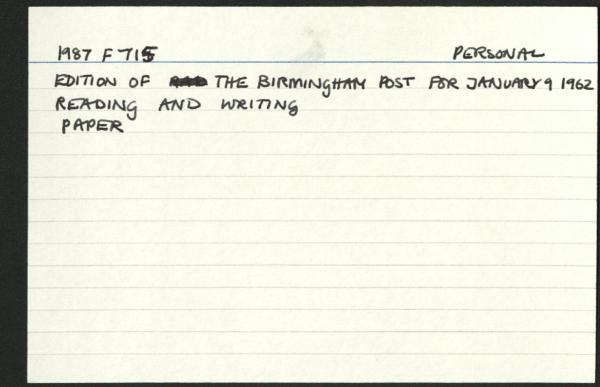 1987 F 715 PERSONAL
EDITION OF THE BIRMINGHAM POST FOR JANUARY 9 1962
READING AND WRITING
PAPER